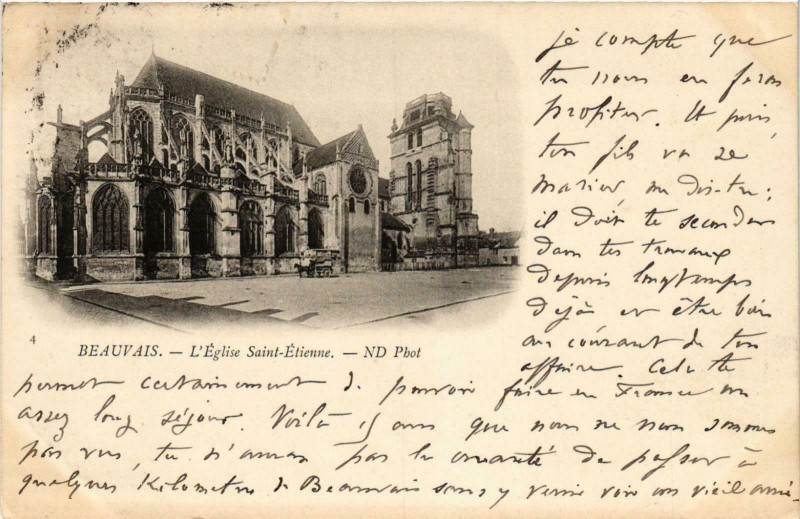 je compte que
tu nous en feras
profiter. Et puis,
ton fils va se
marier me dis-tu;
il doit te seconder
dans tes travaux
depuis longtemps
déjà et être bien
au courant de ton
affaire. Cela te
4
BEAUVAIS. — L'Église Saint-Étienne. — ND Phot
permet certainement de pouvoir faire en France un
assez long séjour. Voilà 15 ans que nous ne nous sommes
pas vus, tu n'auras pas la cruauté de passer à
quelques Kilomètres de Beauvais sans y venir voir un vieil ami.